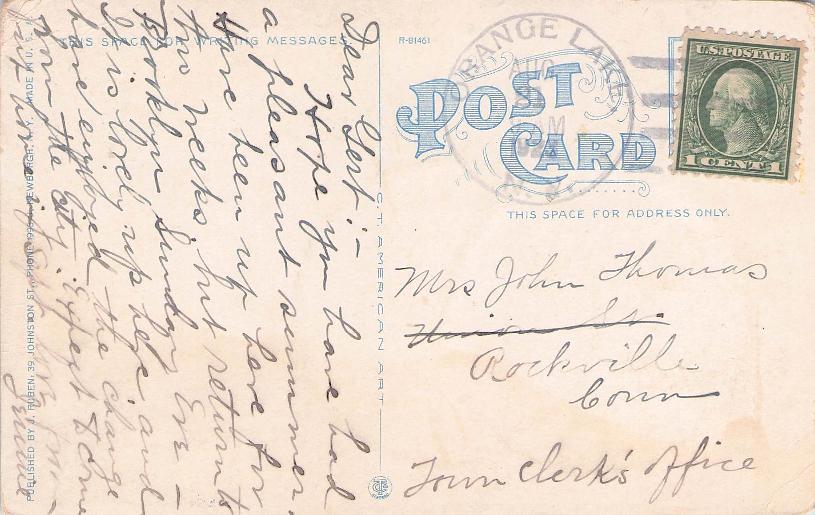 THIS SPACE FOR WRITING MESSAGES
Dear Gert:-
Hope you have had
a pleasant summer.
Have been up here for
two weeks but return to
Brooklyn Sunday Eve -
It is lovely up here and
have enjoyed the change
from the city. Expect to come
Jennie
PUBLISHED BY J. RUBEN, 39 JOHNSTON ST., NEWBURGH, N.Y. MADE IN U.S.A.
C.T. AMERICAN ART
R-81461
POST
CARD
ORANGE LAKE
AUG
N.Y.
U.S. POSTAGE
1 CENT 1
THIS SPACE FOR ADDRESS ONLY.
Mrs John Thomas
Union St.
Rockville
Conn
Town Clerk's office